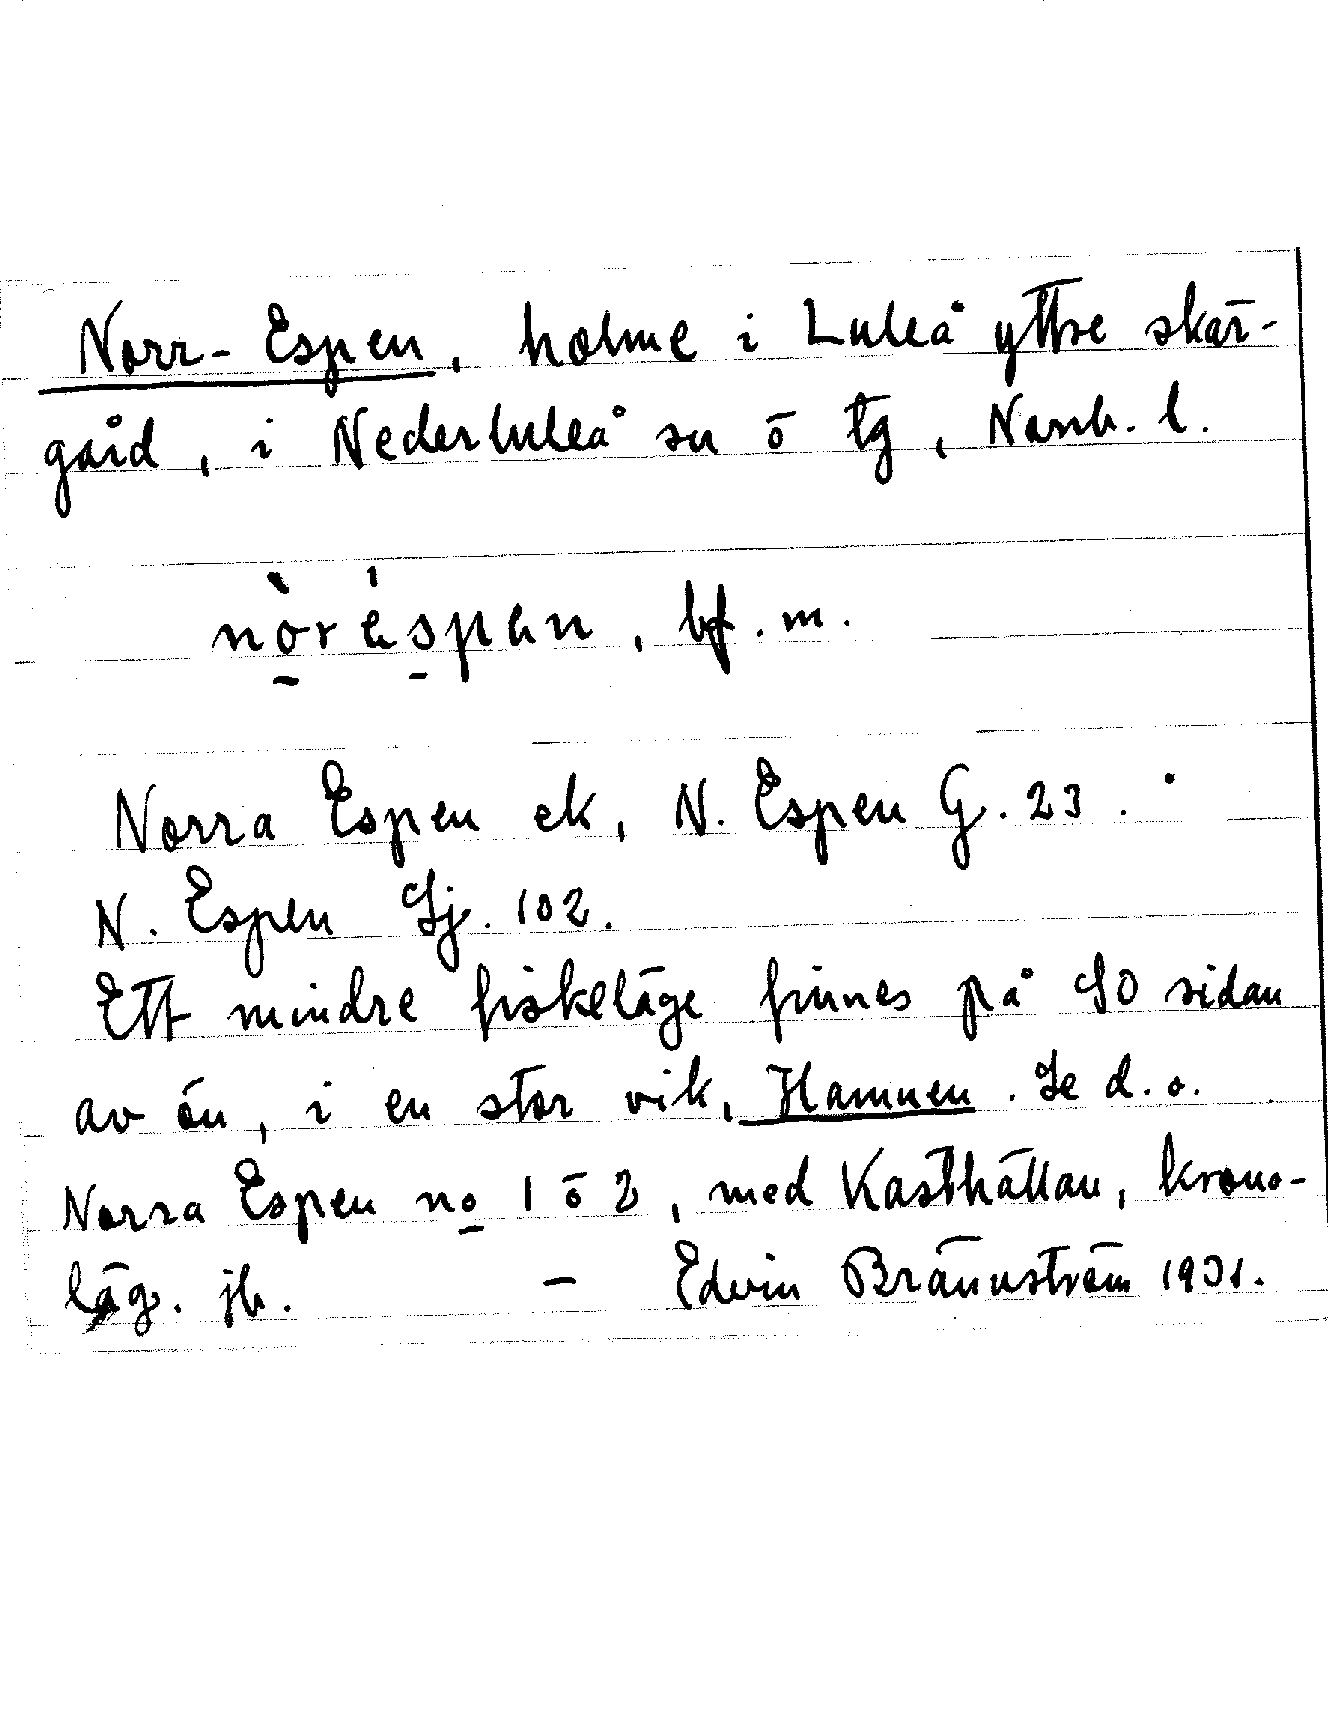 Norr-Espen, holme i Luleå yttre skär-
gård, i Nederluleå sn ō tg, Norrb. l.
nòréspen, bf. m.
Norra Espen ek, N. Espen G. 23.
N. Espen Sj. 102.
Ett mindre fiskeläge finnes på SO sidan
av ön, i en stor vik, Hamnen. Se d. o.
Norra Espen no 1 ō 2, med Kasthällan, krono-
läg. jb. — Edvin Brännström 1931.